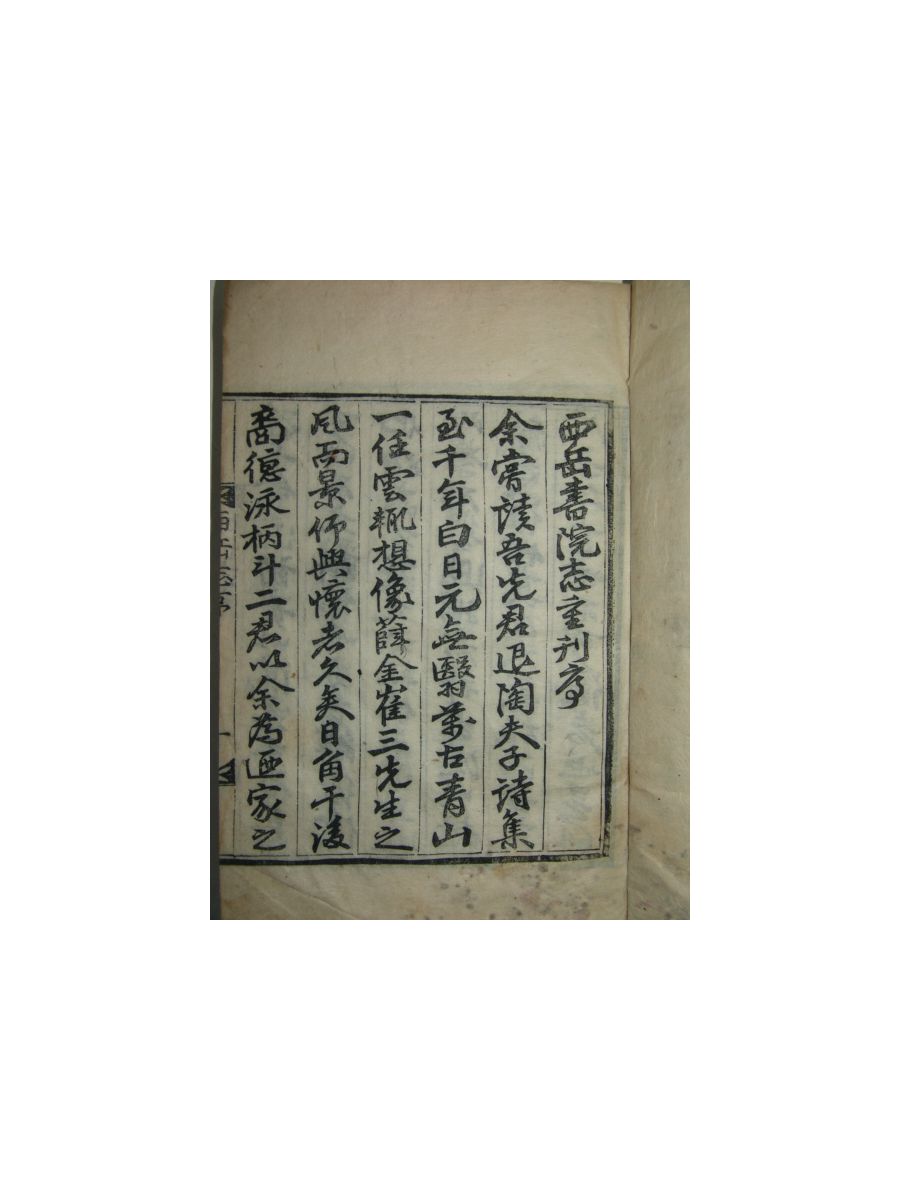 西岳書院志重刊序
余嘗讀吾先君退陶夫子詩集
至千年白日元無翳萬古青山
一任雲輒想像薛金崔三先生之
風而景仰興懷者久矣日角干後
裔德泳柄斗二君以余爲迺家之